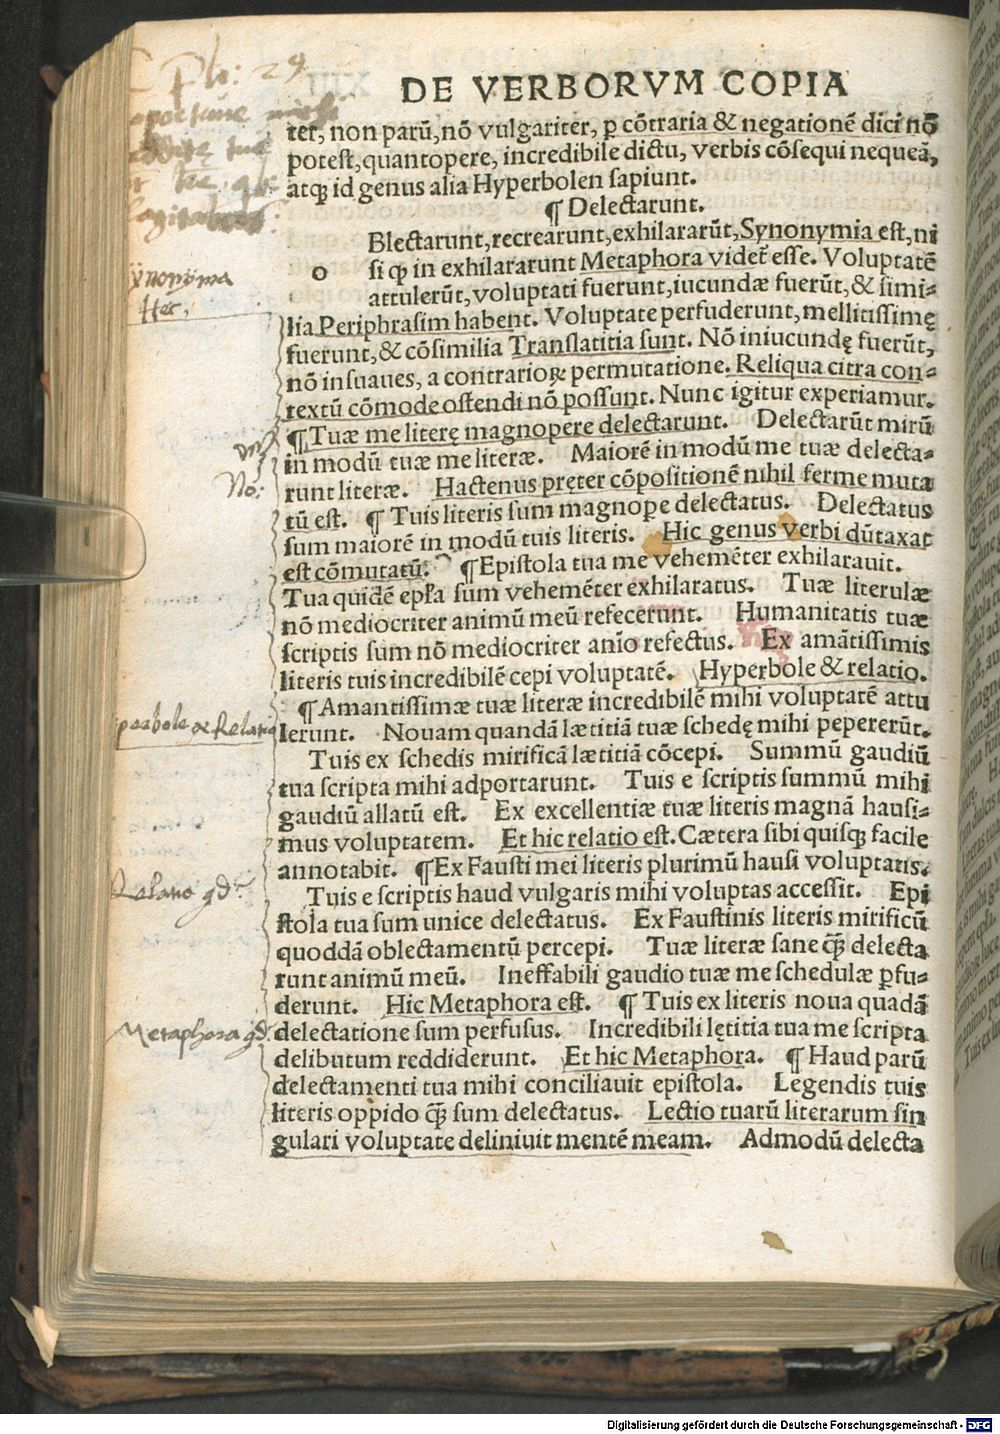 DE VERBORVM COPIA
ter, non parū, nō vulgariter, ꝑ cōtraria & negationē dici nō
potest, quantopere, incredibile dictu, verbis cōsequi nequeā,
atqꝫ id genus alia Hyperbolen sapiunt.
¶ Delectarunt.
Blectarunt, recrearunt, exhilararūt, Synonymia est, ni
o si ꝙ in exhilararunt Metaphora videt esse. Voluptatē
attulerūt, voluptati fuerunt, iucundæ fuerūt, & simi-
lia Periphrasim habent. Voluptate perfuderunt, mellitissimę
fuerunt, & cōsimilia Translatitia sunt. Nō iniucundę fuerūt,
nō insuaues, a contrarioꝝ permutatione. Reliqua citra con-
textū cōmode ostendi nō possunt. Nunc igitur experiamur.
¶ Tuæ me literę magnopere delectarunt. Delectarūt mirū
in modū tuæ me literæ. Maiorē in modū me tuæ delecta-
runt literæ. Hactenus pręter cōpositionē nihil ferme muta
tū est. ¶ Tuis literis sum magnopere delectatus. Delectatus
sum maiorē in modū tuis literis. Hic genus verbi dūtaxat
est cōmutatū. ¶ Epistola tua me vehemēter exhilarauit.
Tua quidē epła sum vehemēter exhilaratus. Tuæ literulæ
nō mediocriter animū meū refecerunt. Humanitatis tuæ
scriptis sum nō mediocriter anīo refectus. Ex amātissimis
literis tuis incredibilē cepi voluptatē. Hyperbole & relatio.
¶ Amantissimæ tuæ literæ incredibilē mihi voluptatē attu
lerunt. Nouam quandā lætitiā tuæ schedę mihi pepererūt.
Tuis ex schedis mirificā lætitiā cōcepi. Summū gaudiū
tua scripta mihi adportarunt. Tuis e scriptis summū mihi
gaudiū allatū est. Ex excellentiæ tuæ literis magnā hausi-
mus voluptatem. Et hic relatio est. Cætera sibi quisqꝫ facile
annotabit. ¶ Ex Fausti mei literis plurimū hausi voluptatis.
Tuis e scriptis haud vulgaris mihi voluptas accessit. Epi
stola tua sum unice delectatus. Ex Faustinis literis mirificū
quoddā oblectamentū percepi. Tuæ literæ sane q̄ꝫ delecta
runt animū meū. Ineffabili gaudio tuæ me schedulæ ꝑfu-
derunt. Hic Metaphora est. ¶ Tuis ex literis noua quadā
delectatione sum perfusus. Incredibili lętitia tua me scripta
delibutum reddiderunt. Et hic Metaphora. ¶ Haud parū
delectamenti tua mihi conciliauit epistola. Legendis tuis
literis oppido q̄ꝫ sum delectatus. Lectio tuarū literarum sin
gulari voluptate deliniuit mentē meam. Admodū delecta
29
ynonyma
Hec.
No:
perbole & Relatio
Relatio
Metaphora
Digitalisierung gefördert durch die Deutsche Forschungsgemeinschaft - DFG